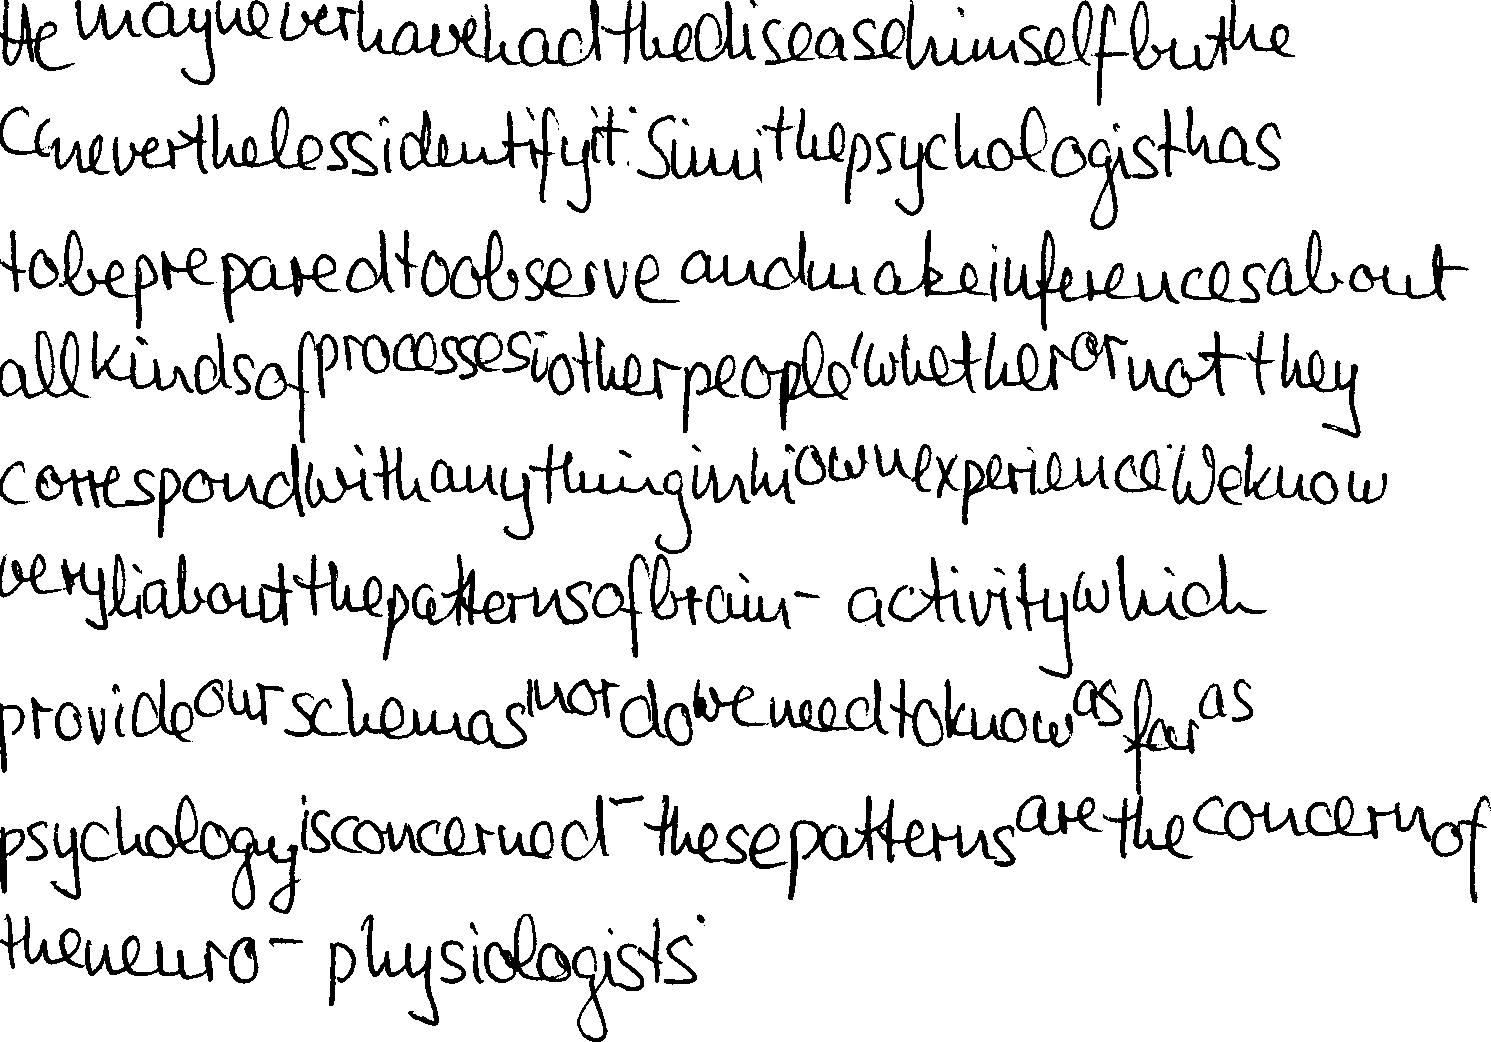 He may never have had the disease himself but he
Ca nevertheless identify it. Simi the psychologist has
to be prepared to observe and make inferences about
all kinds of processes i other people, whether or not they
correspond with anything in hi own experience. We know
very li about the patterns of brain - activity which
provide our schemas nor do we need to know as far as
psychology is concerned - these patterns are the concern of
the neuro - physiologists.